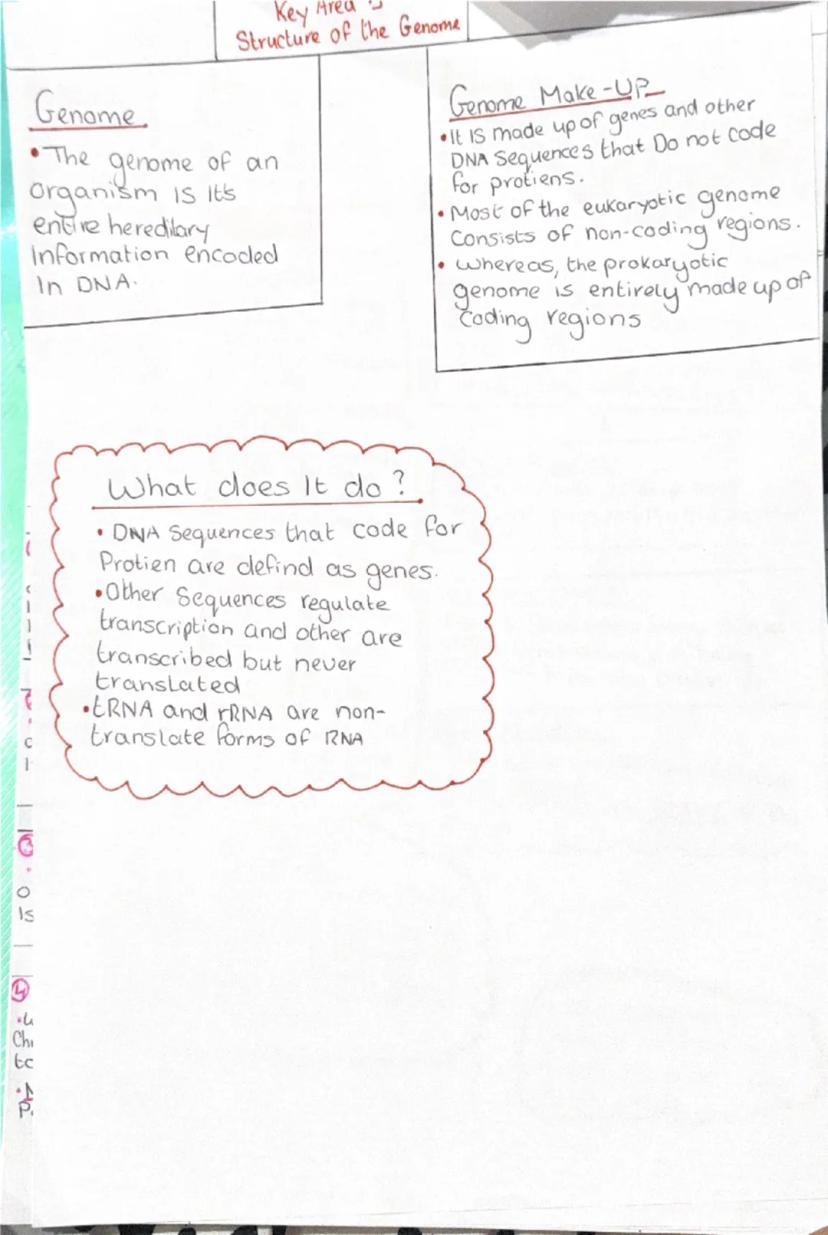 Key Area
Structure of the Genome
Genome
• The genome of an
organism is it's
entire hereditary
Information encoded
In DNA.
Genome Make-UP
• It is made up of genes and other
DNA sequences that Do not code
for protiens.
• Most of the eukaryotic genome
consists of non-coding regions.
• whereas, the prokaryotic
genome is entirely made up of
coding regions
What does It do ?
• DNA Sequences that code for
Protien are defind as genes.
• Other Sequences regulate
transcription and other are
transcribed but never
translated
• tRNA and rRNA are non-
translate forms of RNA